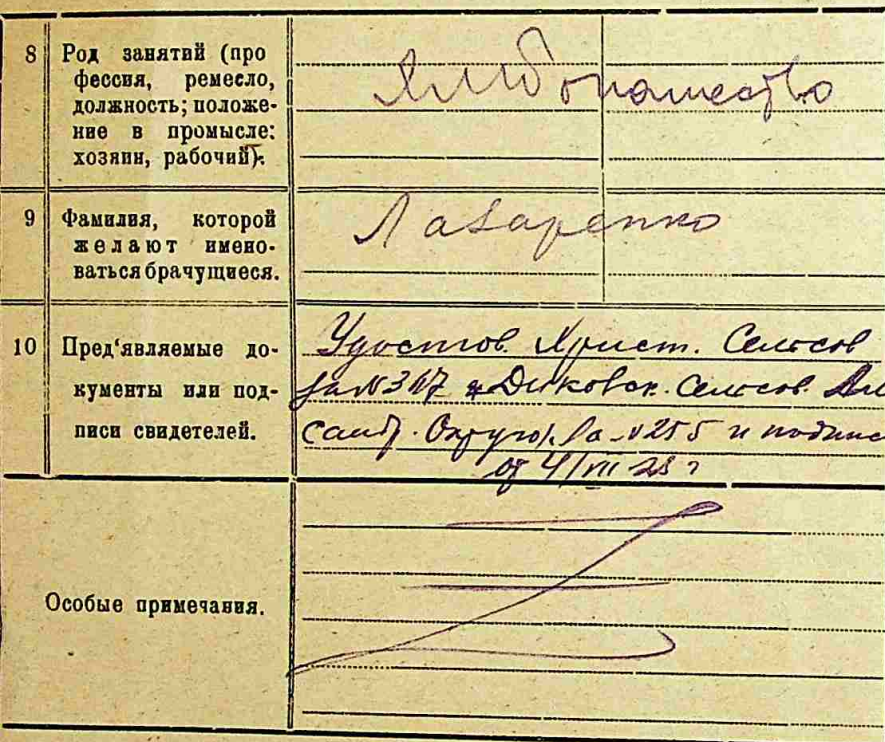 8 Род занятий (про
фессия, ремесло,
должность; положе-
ние в промысле:
хозяин, рабочий).
Хлебопашество
9 Фамилия, которой
желают имено-
ваться брачущиеся.
Лазаренко
10 Пред'являемые до-
кументы или под-
писи свидетелей.
Удостов. Христ. Сельсов
за № и Диковск. Сельсов.
Округа, за № 255 и подпис
от 4/VII 28 г
Особые примечания.